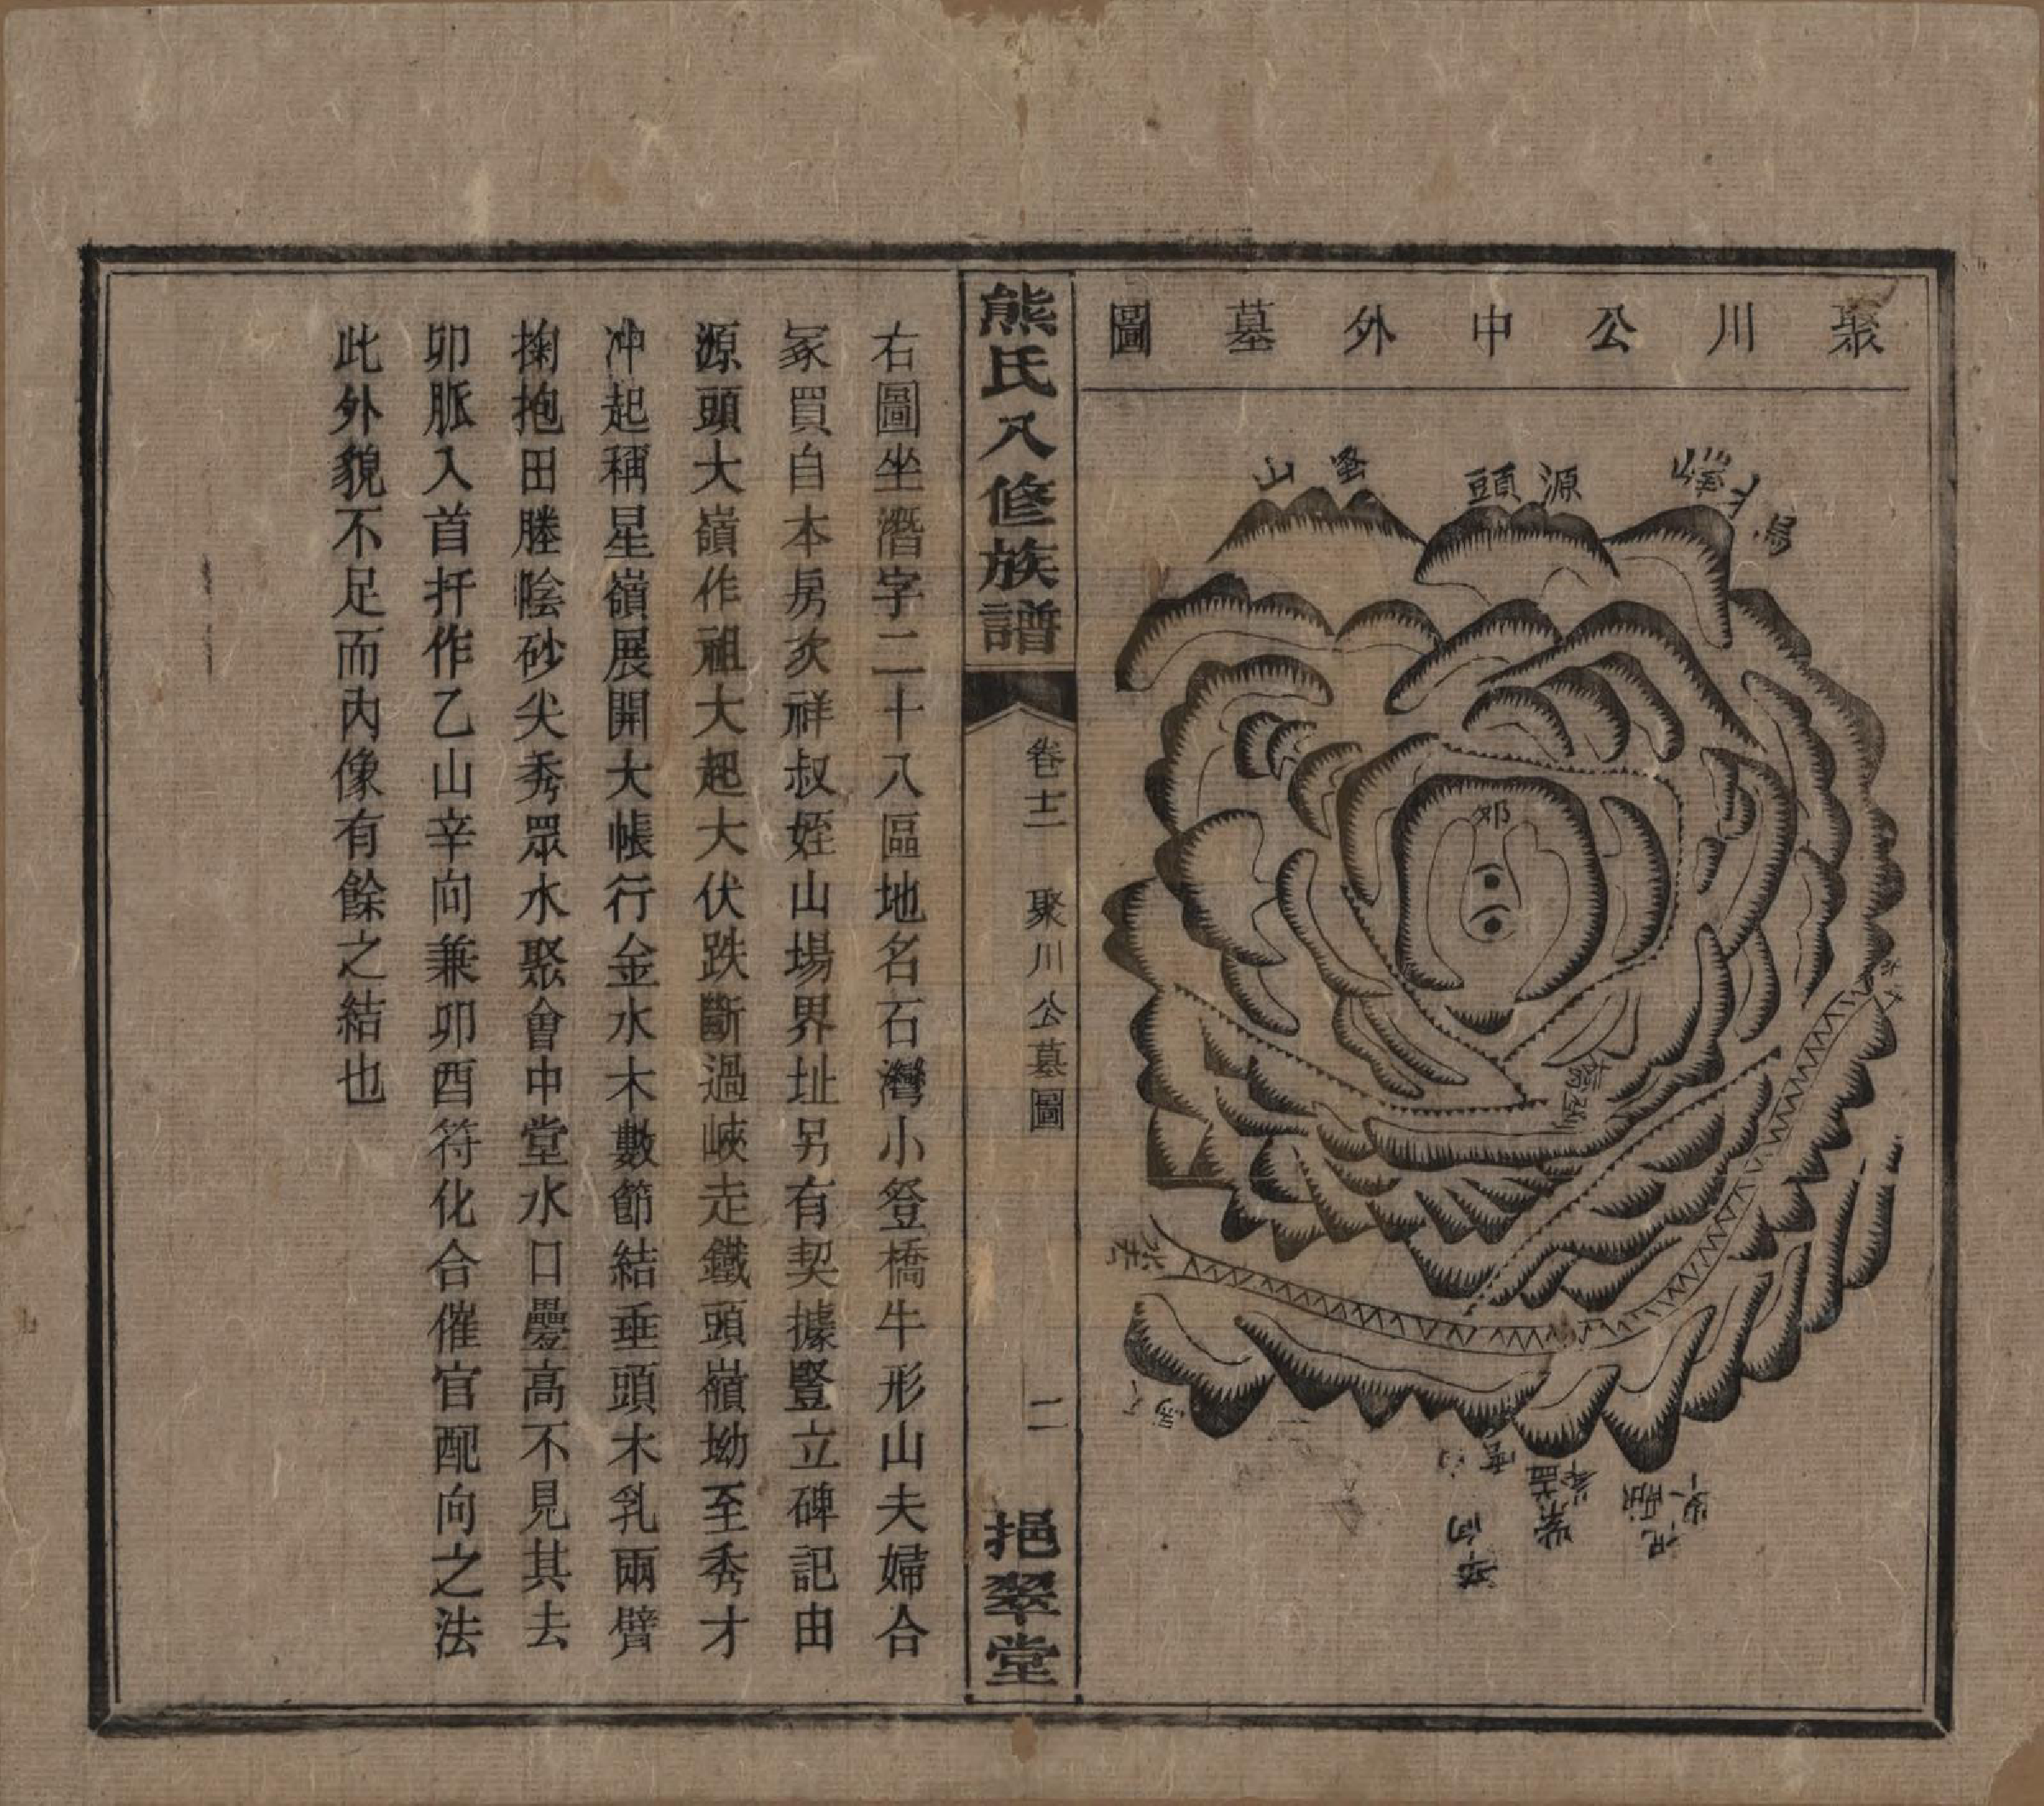 聚川公中外墓圖
源頭
蚤山
卯
熊氏八修族譜
卷十二 聚川公墓圖
二
挹翠堂
右圖坐潛字二十八區地名石灣小登橋牛形山夫婦合
冢買自本房亥祥叔姪山場界址另有契據豎立碑記由
源頭大嶺作祖大起大伏跌斷過峽走鐵頭嶺坳至秀才
冲起稱星嶺展開大帳行金水木數節結垂頭木乳兩臂
掬抱田塍陰砂尖秀眾水聚會中堂水口疊高不見其去
卯脈入首扦作乙山辛向兼卯酉符化合催官配向之法
此外貌不足而內像有餘之結也